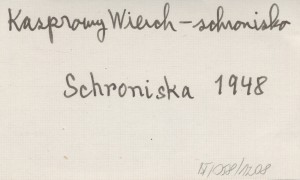 Kasprowy Wierch – schronisko
Schroniska 1948